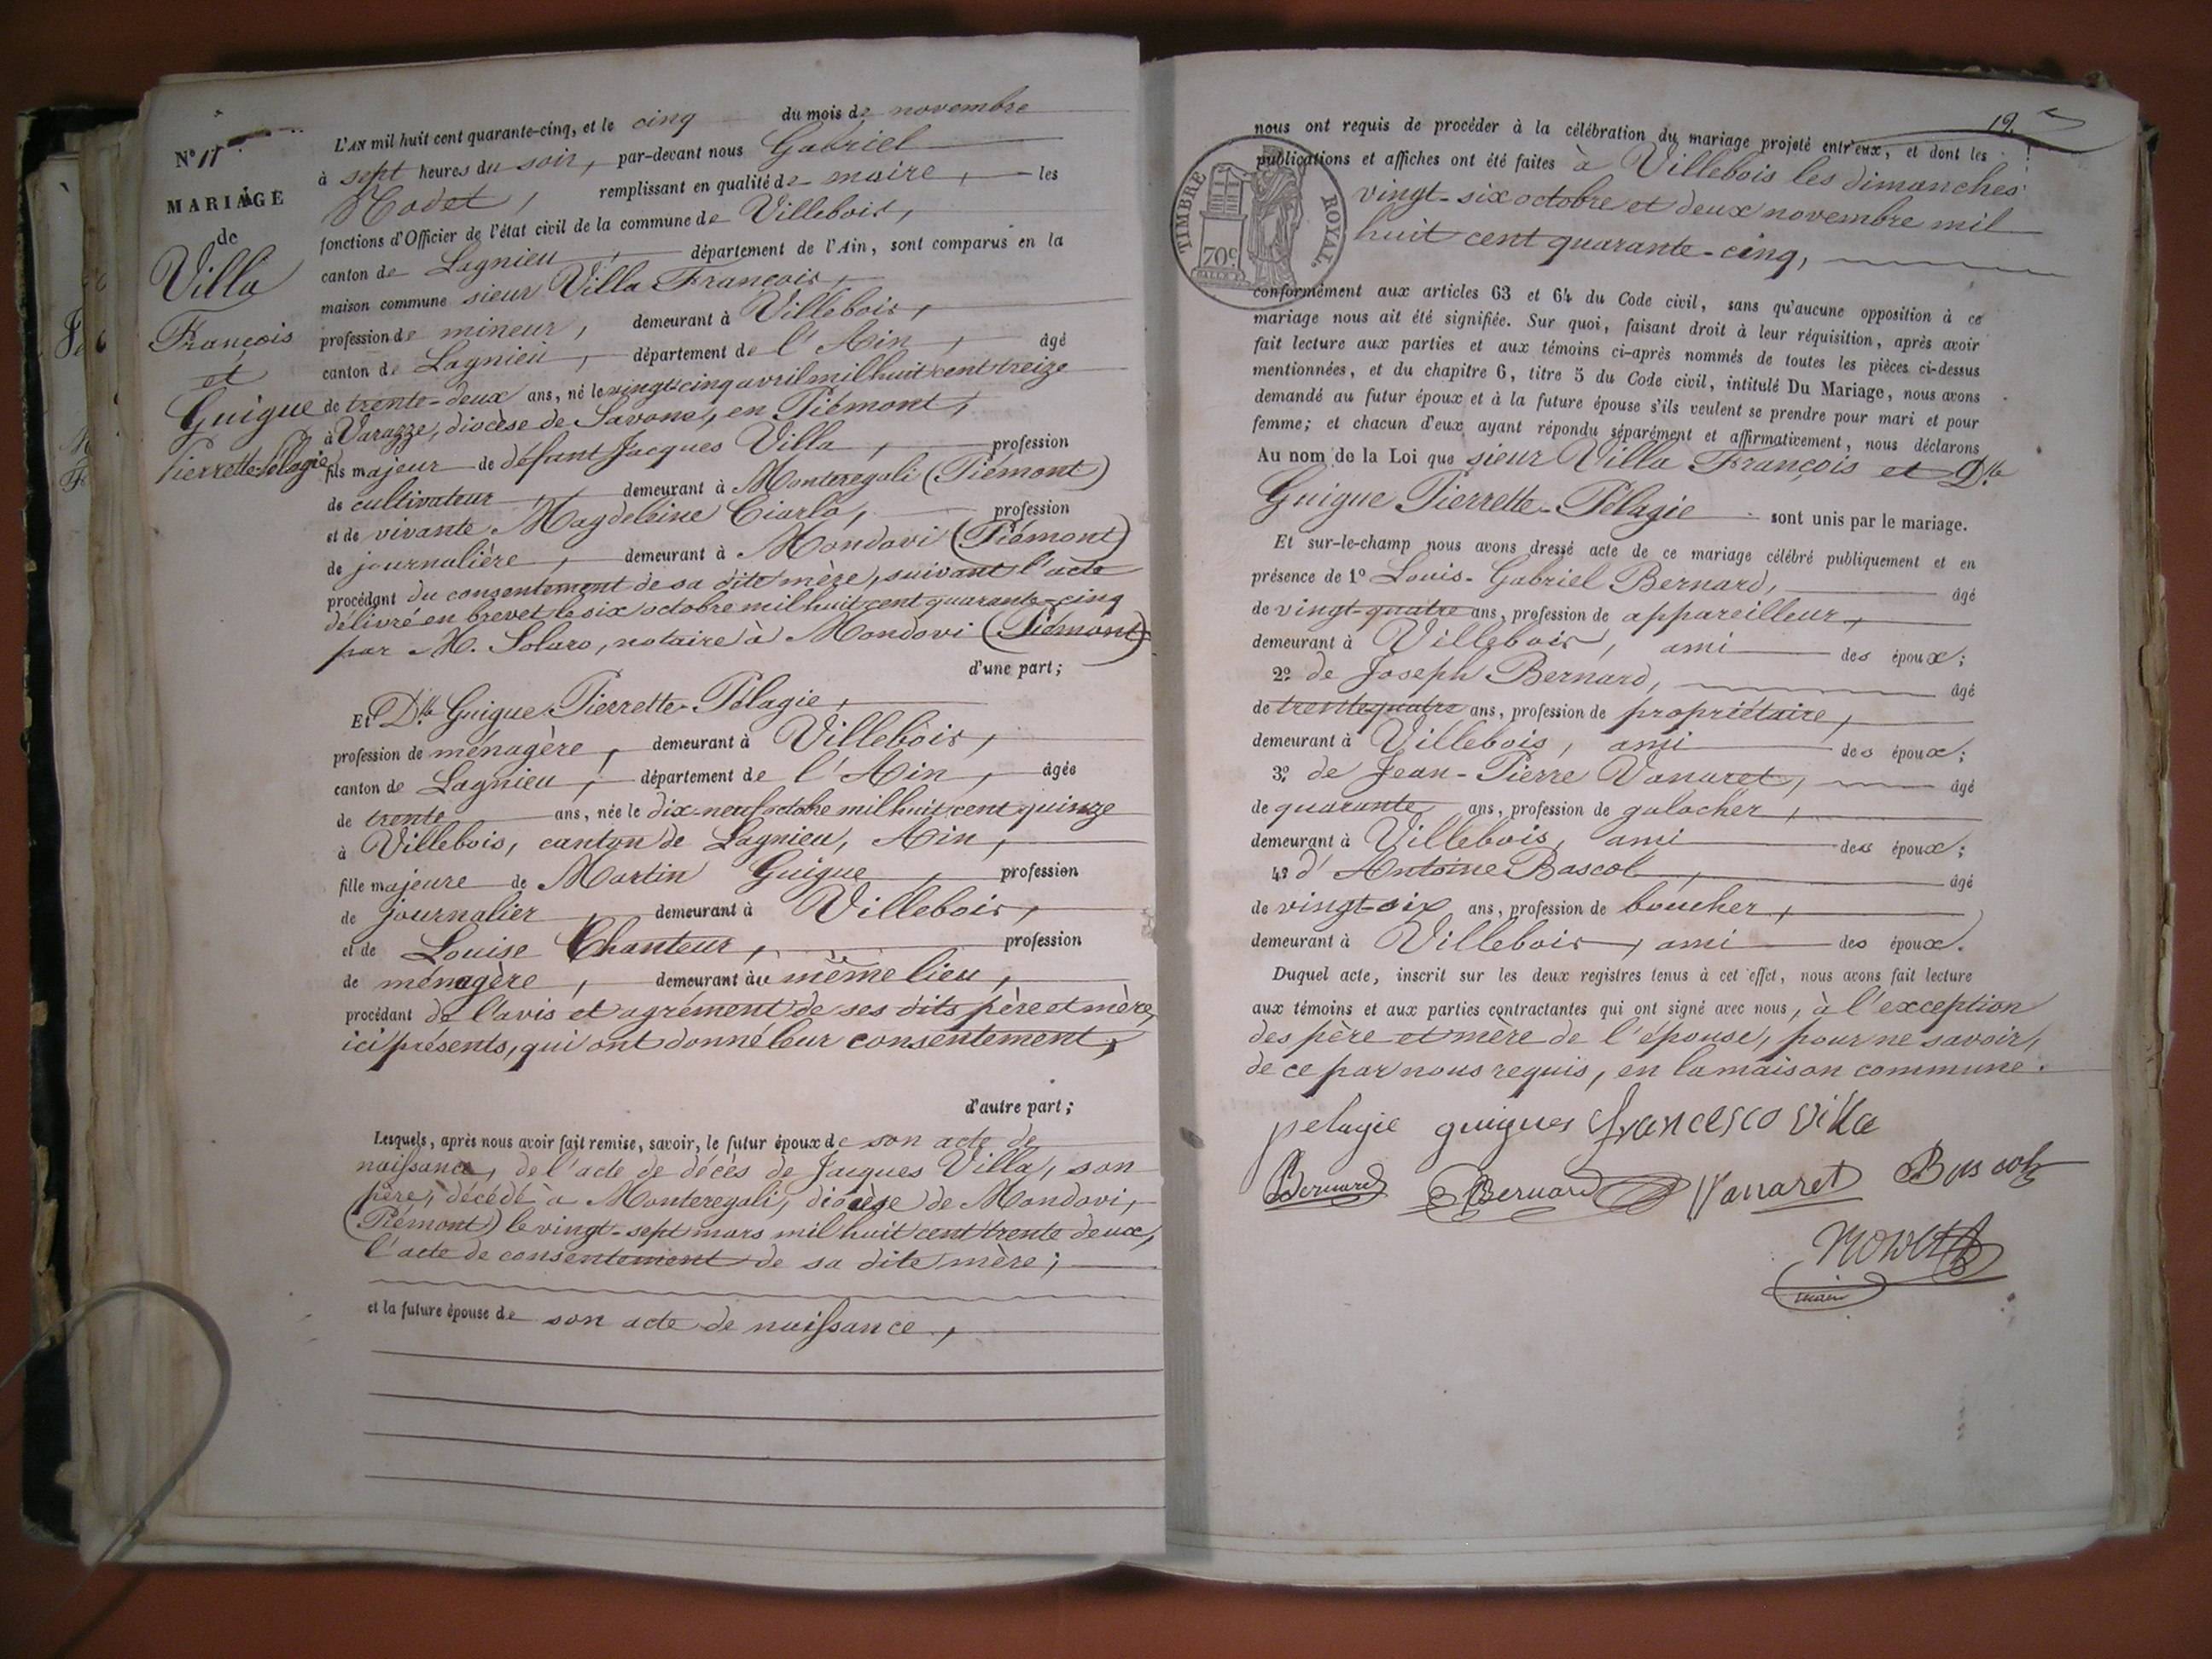 N° 11
MARIAGE
de
Villa
François
et
Guigue
Pierrette-Pélagie
L'AN mil huit cent quarante-cinq, et le cinq du mois de novembre
à sept heures du soir, par-devant nous Gabriel
Nodet, remplissant en qualité de maire, les
fonctions d'Officier de l'état civil de la commune de Villebois,
canton de Lagnieu, département de l'Ain, sont comparus en la
maison commune sieur Villa François,
profession de mineur, demeurant à Villebois,
canton de Lagnieu, département de l'Ain, âgé
de trente-deux ans, né le vingt-cinq avril mil huit cent treize
à Varazze, diocèse de Savone, en Piémont,
fils majeur de défunt Jacques Villa, profession
de cultivateur, demeurant à Monteregali (Piémont)
et de vivante Magdeleine Ciarlo, profession
de journalière, demeurant à Mondovi (Piémont)
procédant du consentement de sa dite mère, suivant l'acte
délivré en brevet le six octobre mil huit cent quarante-cinq
par M. Solaro, notaire à Mondovi (Piémont)
d'une part;
Et Dlle Guigue Pierrette-Pélagie,
profession de ménagère, demeurant à Villebois,
canton de Lagnieu, département de l'Ain, âgée
de trente ans, née le dix-neuf octobre mil huit cent quinze
à Villebois, canton de Lagnieu, Ain,
fille majeure de Martin Guigue, profession
de journalier, demeurant à Villebois,
et de Louise Chanteur, profession
de ménagère, demeurant au même lieu,
procédant de l'avis et agrément de ses dits père et mère,
ici présents, qui ont donné leur consentement,
d'autre part;
Lesquels, après nous avoir fait remise, savoir, le futur époux de son acte de
naissance, de l'acte de décès de Jacques Villa, son
père, décédé à Monteregali, diocèse de Mondovi,
(Piémont) le vingt-sept mars mil huit cent trente deux,
l'acte de consentement de sa dite mère;
et la future épouse de son acte de naissance,
19.
nous ont requis de procéder à la célébration du mariage projeté entr'eux, et dont les
publications et affiches ont été faites à Villebois les dimanches
vingt-six octobre et deux novembre mil
huit cent quarante-cinq,
TIMBRE ROYAL.
70c
conformément aux articles 63 et 64 du Code civil, sans qu'aucune opposition à ce
mariage nous ait été signifiée. Sur quoi, faisant droit à leur réquisition, après avoir
fait lecture aux parties et aux témoins ci-après nommés de toutes les pièces ci-dessus
mentionnées, et du chapitre 6, titre 5 du Code civil, intitulé Du Mariage, nous avons
demandé au futur époux et à la future épouse s'ils veulent se prendre pour mari et pour
femme; et chacun d'eux ayant répondu séparément et affirmativement, nous déclarons
Au nom de la Loi que sieur Villa François et Dlle
Guigue Pierrette-Pélagie sont unis par le mariage.
Et sur-le-champ nous avons dressé acte de ce mariage célébré publiquement et en
présence de 1° Louis-Gabriel Bernard, âgé
de vingt-quatre ans, profession de appareilleur,
demeurant à Villebois, ami des époux;
2° de Joseph Bernard, âgé
de trente quatre ans, profession de propriétaire,
demeurant à Villebois, ami des époux;
3° de Jean-Pierre Vanaret, âgé
de quarante ans, profession de galocher,
demeurant à Villebois, ami des époux;
4° d'Antoine Bascol, âgé
de vingt-six ans, profession de boucher,
demeurant à Villebois, ami des époux.
Duquel acte, inscrit sur les deux registres tenus à cet effet, nous avons fait lecture
aux témoins et aux parties contractantes qui ont signé avec nous, à l'exception
des père et mère de l'épouse, pour ne savoir,
de ce par nous requis, en la maison commune.
pelagie guigues francesco villa
Bernard Bernard Vanaret Bascol
Nodet
maire